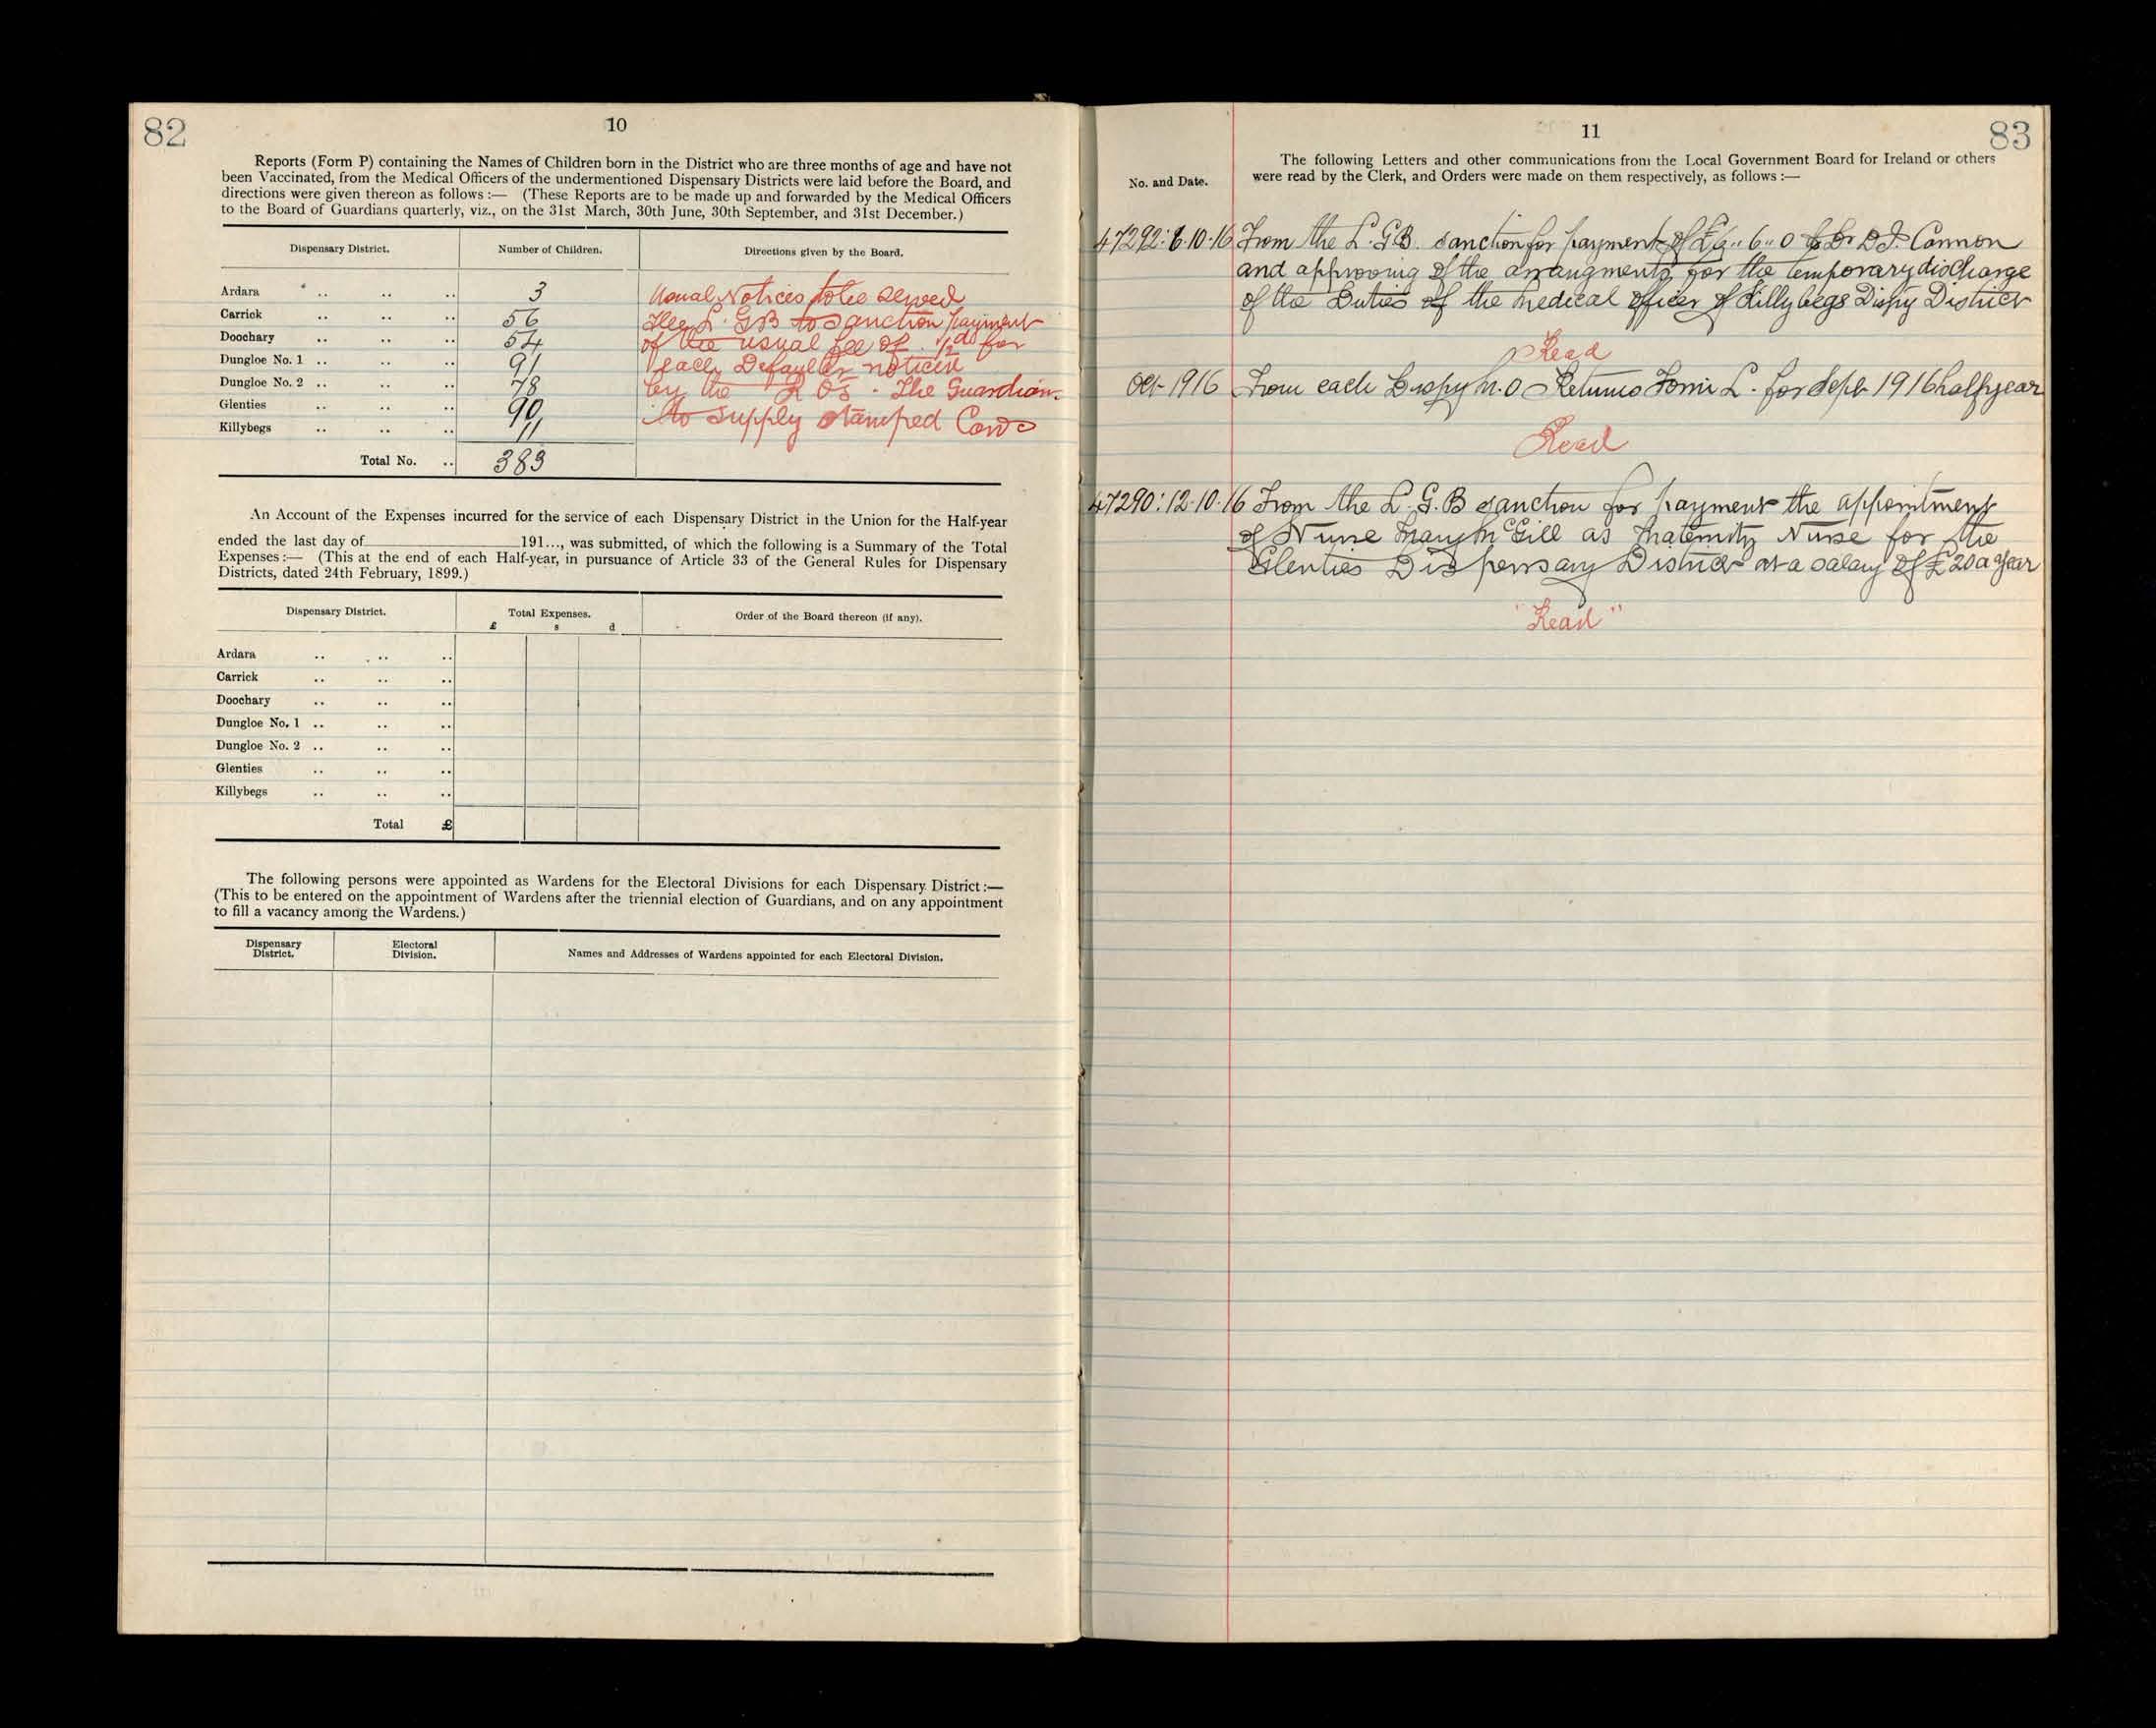 82
10
Reports (Form P) containing the Names of Children born in the District who are three months of age and have not
been Vaccinated, from the Medical Officers of the undermentioned Dispensary Districts were laid before the Board, and
directions were given thereon as follows :— (These Reports are to be made up and forwarded by the Medical Officers
to the Board of Guardians quarterly, viz., on the 31st March, 30th June, 30th September, and 31st December.)
Dispensary District. Number of Children. Directions given by the Board.
Ardara .. .. .. 3 Usual Notices to be served
Carrick .. .. .. 56 The L. G B to sanction payment
Doochary .. .. .. 54 of the usual fee of for
Dungloe No. 1 .. .. .. 91 each Defaulter noticed
Dungloe No. 2 .. .. .. 78 by the R O's. The Guardians
Glenties .. .. .. 90 to supply stamped Cards
Killybegs .. .. .. 11
Total No. .. 383
An Account of the Expenses incurred for the service of each Dispensary District in the Union for the Half-year
ended the last day of 191..., was submitted, of which the following is a Summary of the Total
Expenses :— (This at the end of each Half-year, in pursuance of Article 33 of the General Rules for Dispensary
Districts, dated 24th February, 1899.)
Dispensary District. Total Expenses. Order of the Board thereon (if any).
£ s d
Ardara .. .. ..
Carrick .. .. ..
Doochary .. .. ..
Dungloe No. 1 .. .. ..
Dungloe No. 2 .. .. ..
Glenties .. .. ..
Killybegs .. .. ..
Total £
The following persons were appointed as Wardens for the Electoral Divisions for each Dispensary District :—
(This to be entered on the appointment of Wardens after the triennial election of Guardians, and on any appointment
to fill a vacancy among the Wardens.)
Dispensary District. Electoral Division. Names and Addresses of Wardens appointed for each Electoral Division.
11
83
No. and Date.
The following Letters and other communications from the Local Government Board for Ireland or others
were read by the Clerk, and Orders were made on them respectively, as follows :—
47292: 6.10.16 From the L. G.B. sanction for payment of £6..6..0 to Dr D J. Cannon
and approving of the arrangments for the temporary discharge
of the Duties of the Medical Officer of Killybegs Dispy District
Read
Oct 1916 From each Dispy M.O Returns Form L. for Sept 1916 half year
Read
47290: 12.10.16 From the L. G. B sanction for payment the appointment
of Nurse Mary McGill as Maternity Nurse for the
Glenties Dispensary District at a salary of £20 a year
"Read"